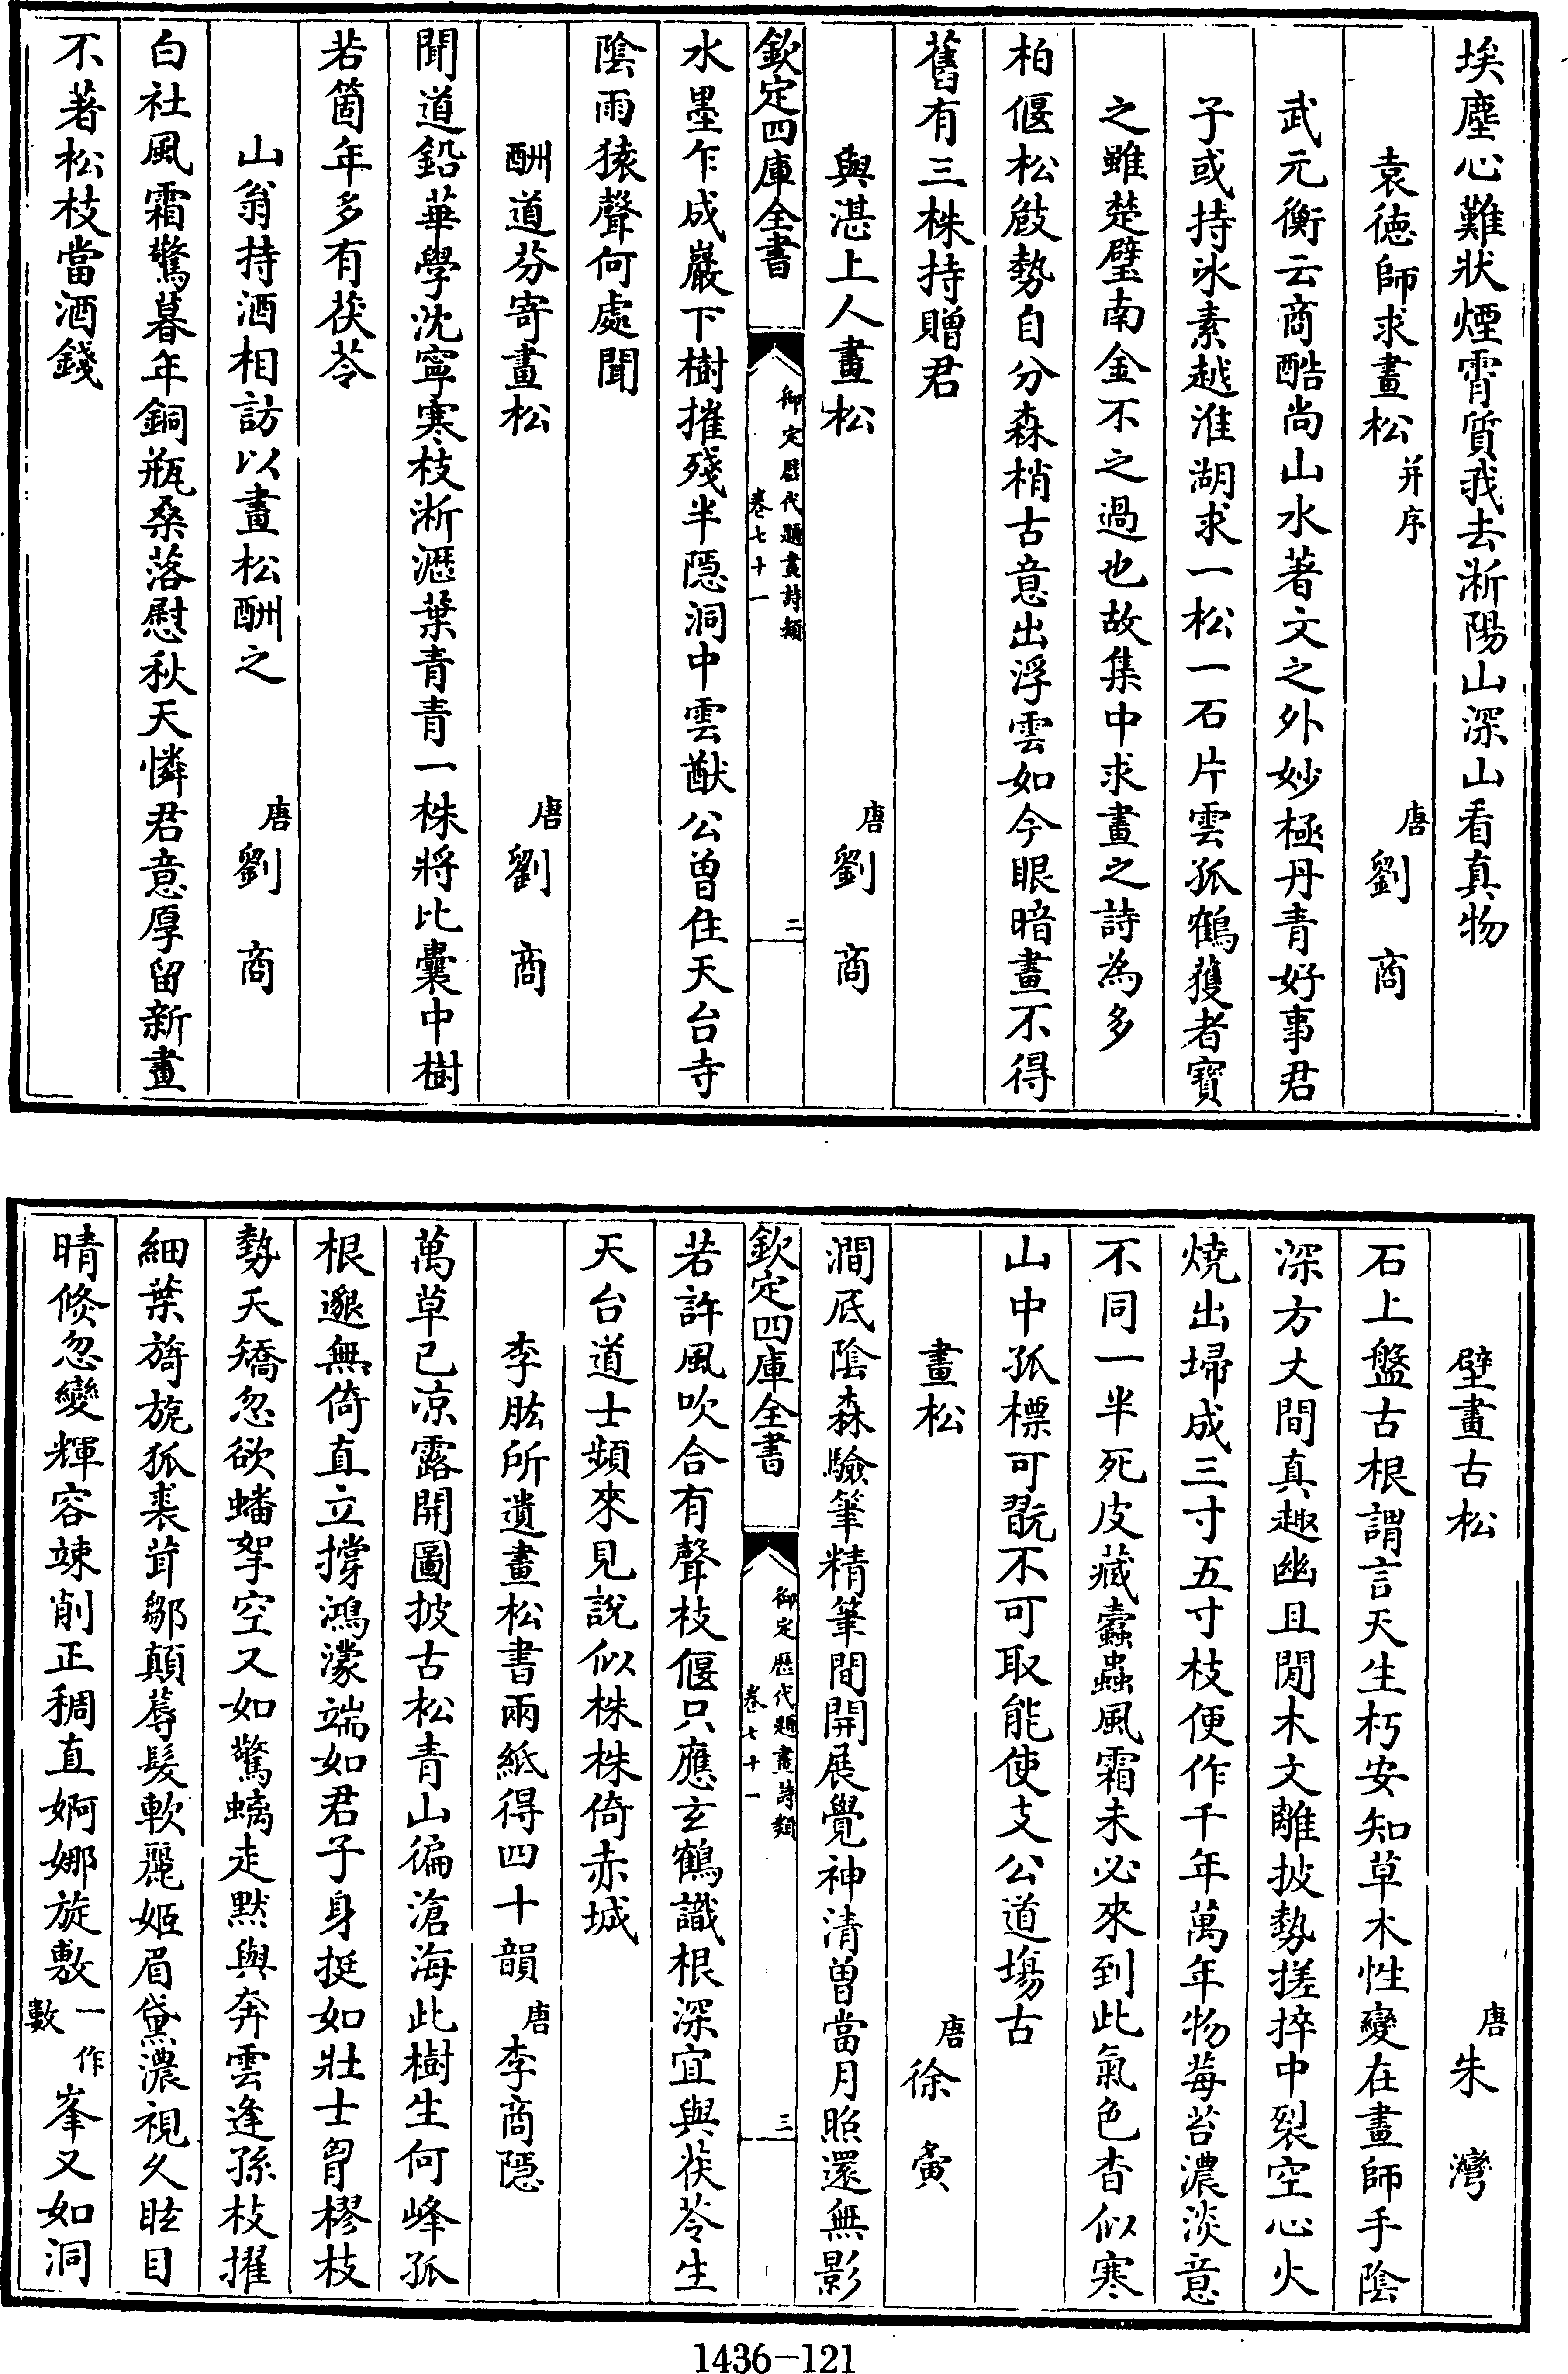 埃塵心難狀煙霄質我去淅陽山深山看真物
袁徳師求畫松并序　唐劉商
武元衡云商酷尚山水著文之外妙極丹青好事君
子或持氷素越淮湖求一松一石片雲孤鶴獲者寳
之雖楚璧南金不之過也故集中求畫之詩為多
柏偃松㩻勢自分森梢古意出浮雲如今眼暗畫不得
舊有三株持贈君
與湛上人畫松　唐劉商
欽定四庫全書　御定歴代題畫詩類卷七十一　二
水墨乍成巖下樹摧殘半隠洞中雲猷公曽住天台寺
陰雨猿聲何處聞
酬道芬寄畫松　唐劉商
聞道鉛華學沈寧寒枝淅瀝葉青青一株將比囊中樹
若箇年多有茯苓
山翁持酒相訪以畫松酬之　唐劉商
白社風霜驚暮年銅瓶桑落慰秋天憐君意厚留新畫
不著松枝當酒錢
壁畫古松　唐朱灣
石上盤古根謂言天生朽安知草木性變在畫師手陰
深方丈間真趣幽且閒木文離披勢搓捽中裂空心火
燒出掃成三寸五寸枝便作千年萬年物莓苔濃淡意
不同一半死皮藏蠧蟲風霜未必來到此氣色杳似寒
山中孤標可翫不可取能使支公道塲古
畫松　唐徐夤
澗底陰森驗筆精筆間開展覺神清曽當月照還無影
欽定四庫全書　御定歴代題畫詩類卷七十一　三
若許風吹合有聲枝偃只應𤣥鶴識根深宜與茯苓生
天台道士頻來見說似株株倚赤城
李肱所遺畫松書兩紙得四十韻　唐李商隠
萬草已凉露開圖披古松青山徧滄海此樹生何峰孤
根邈無倚直立撐鴻濛端如君子身挺如壯士胷樛枝
勢夭矯忽欲蟠拏空又如驚螭走黙與奔雲逢孫枝擢
細葉旖旎狐裘茸鄒顛蓐髮軟麗姬眉黛濃視久眩目
晴倐忽變輝容竦削正稠直婀娜旋敷一作數峯又如洞
1436-121